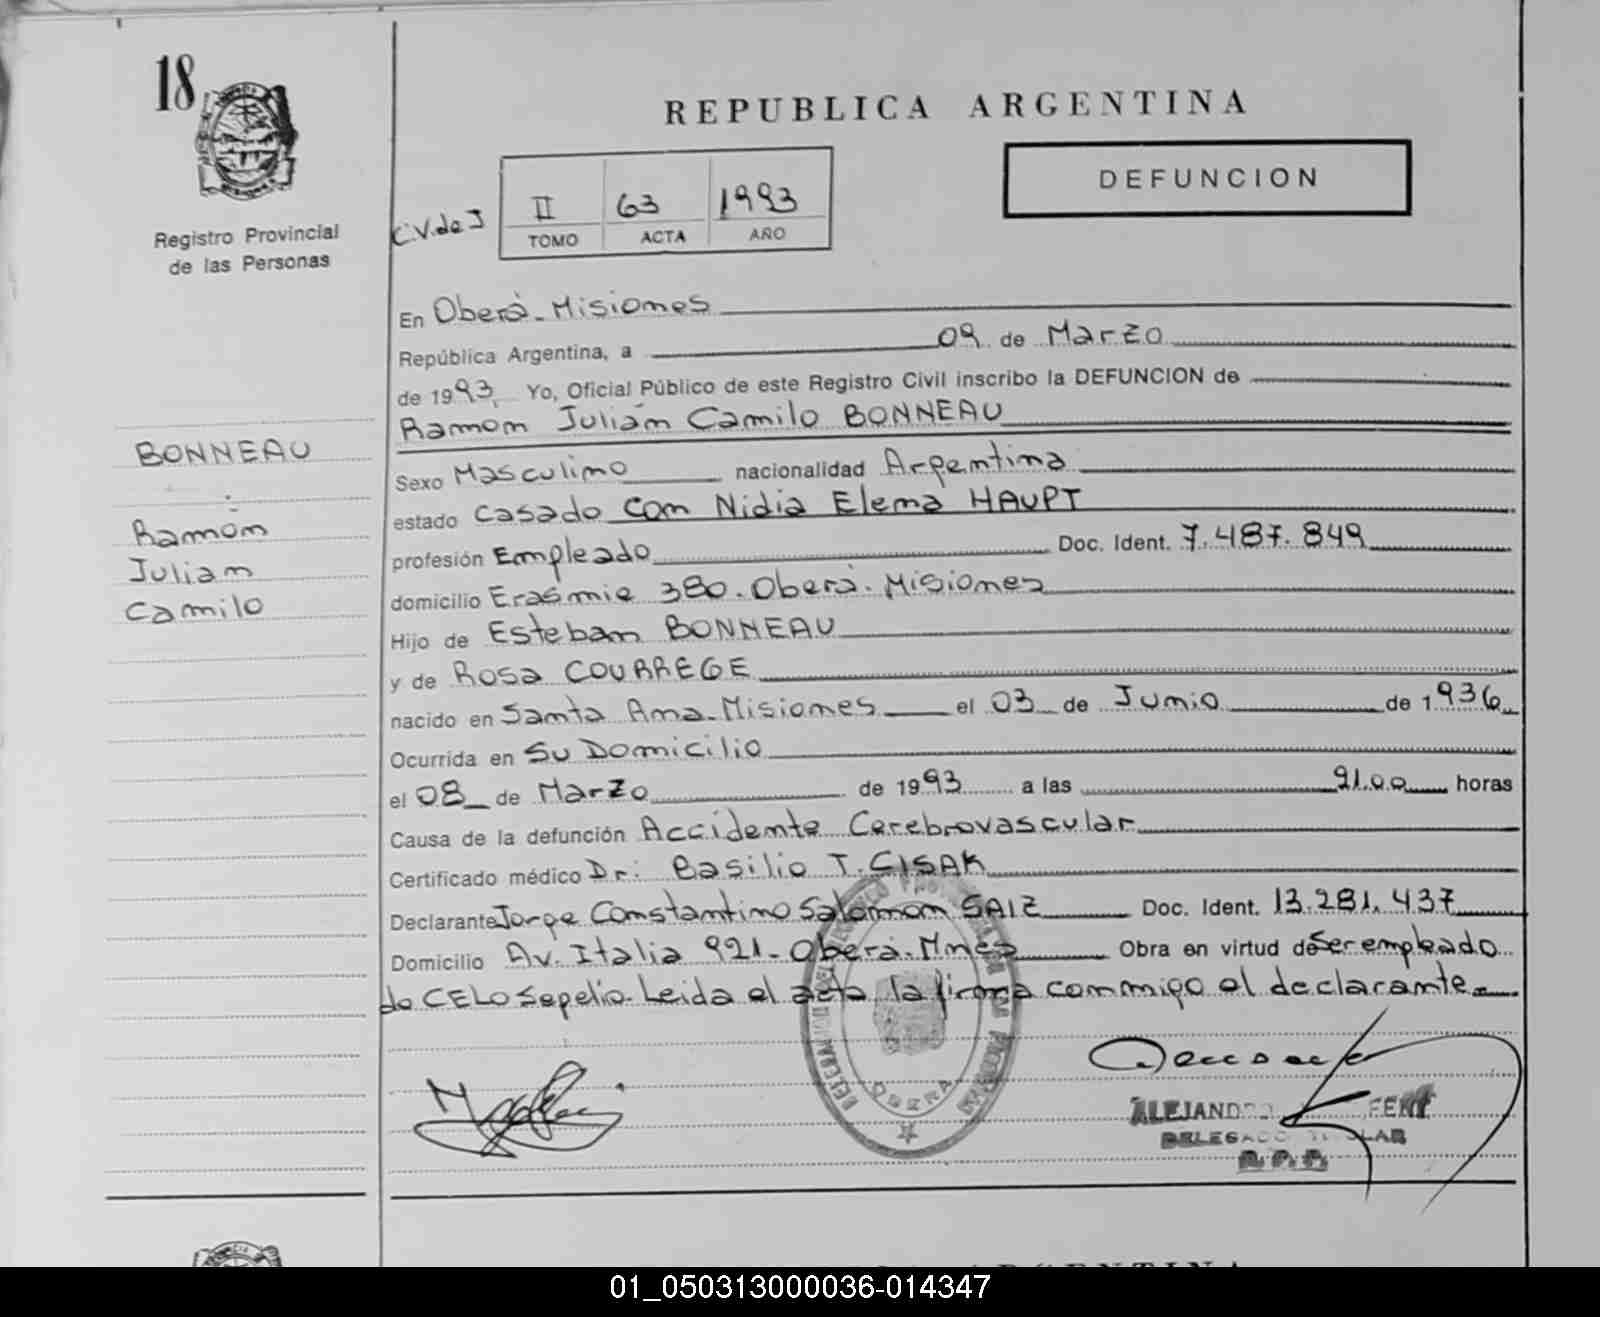 18
REPUBLICA ARGENTINA
DEFUNCION
Registro Provincial
de las Personas
C.V. de J
II 63 1993
TOMO ACTA AÑO
En Oberá - Misiones
República Argentina, a 09 de Marzo
de 1993, Yo, Oficial Público de este Registro Civil inscribo la DEFUNCION de
Ramón Julián Camilo BONNEAU
BONNEAU
Ramón
Julian
Camilo
Sexo Masculino nacionalidad Argentina
estado casado con Nidia Elena HAUPT
profesión Empleado Doc. Ident. 7.487.849
domicilio Erasmie 380. Oberá. Misiones
Hijo de Esteban BONNEAU
y de Rosa COURREGE
nacido en Santa Ana - Misiones el 03 de Junio de 1936
Ocurrida en Su Domicilio
el 08 de Marzo de 1993 a las 21.00 horas
Causa de la defunción Accidente Cerebrovascular
Certificado médico Dr: Basilio T. CISAK
Declarante Jorge Constantino Salomon SAIZ Doc. Ident. 13.281.437
Domicilio Av. Italia 921 - Oberá - Mnes Obra en virtud de Ser empleado
de CELO Sepelio. Leida el acta la firma conmigo el declarante.
OBERA
ALEJANDRO
DELEGADO TITULAR
01_050313000036-014347